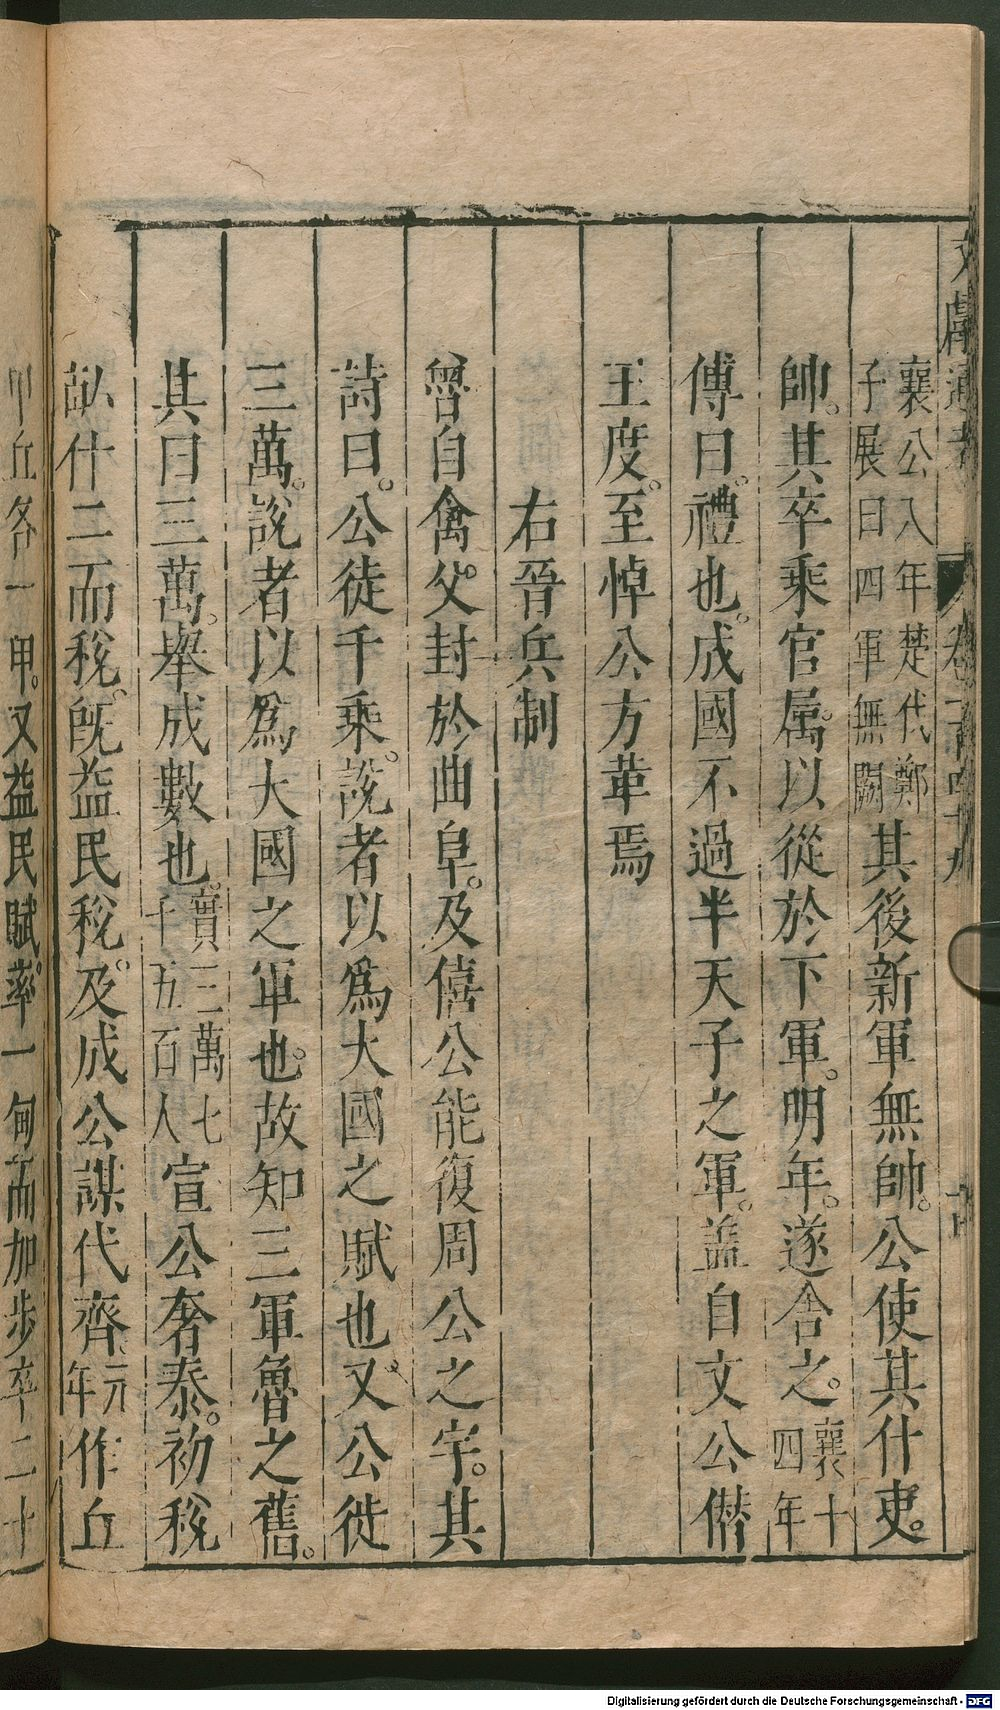 文獻通考 卷一百四十九
襄公八年楚代鄭
子展曰四軍無闕其後新軍無帥。公使其什吏。
帥。其卒乘官属。以從於下軍。明年。遂舍之。襄十
四年
傅曰。禮也。成國不過半天子之軍。盖自文公僣
王度。至悼公方革焉
右晉兵制
魯自禽父。封於曲阜。及僖公能復周公之宇。其
詩曰。公徒千乘。說者以爲大國之賦也。又公徙
三萬。說者以爲大國之軍也。故知三軍魯之舊。
其曰三萬。舉成數也。實三萬七
千五百人宣公奢泰。初稅
畝什二而稅。旣益民稅。及成公謀代齊。元
年作丘
甲丘各一甲。又益民賦。率一甸而加步卒二十
Digitalisierung gefördert durch die Deutsche Forschungsgemeinschaft - DFG